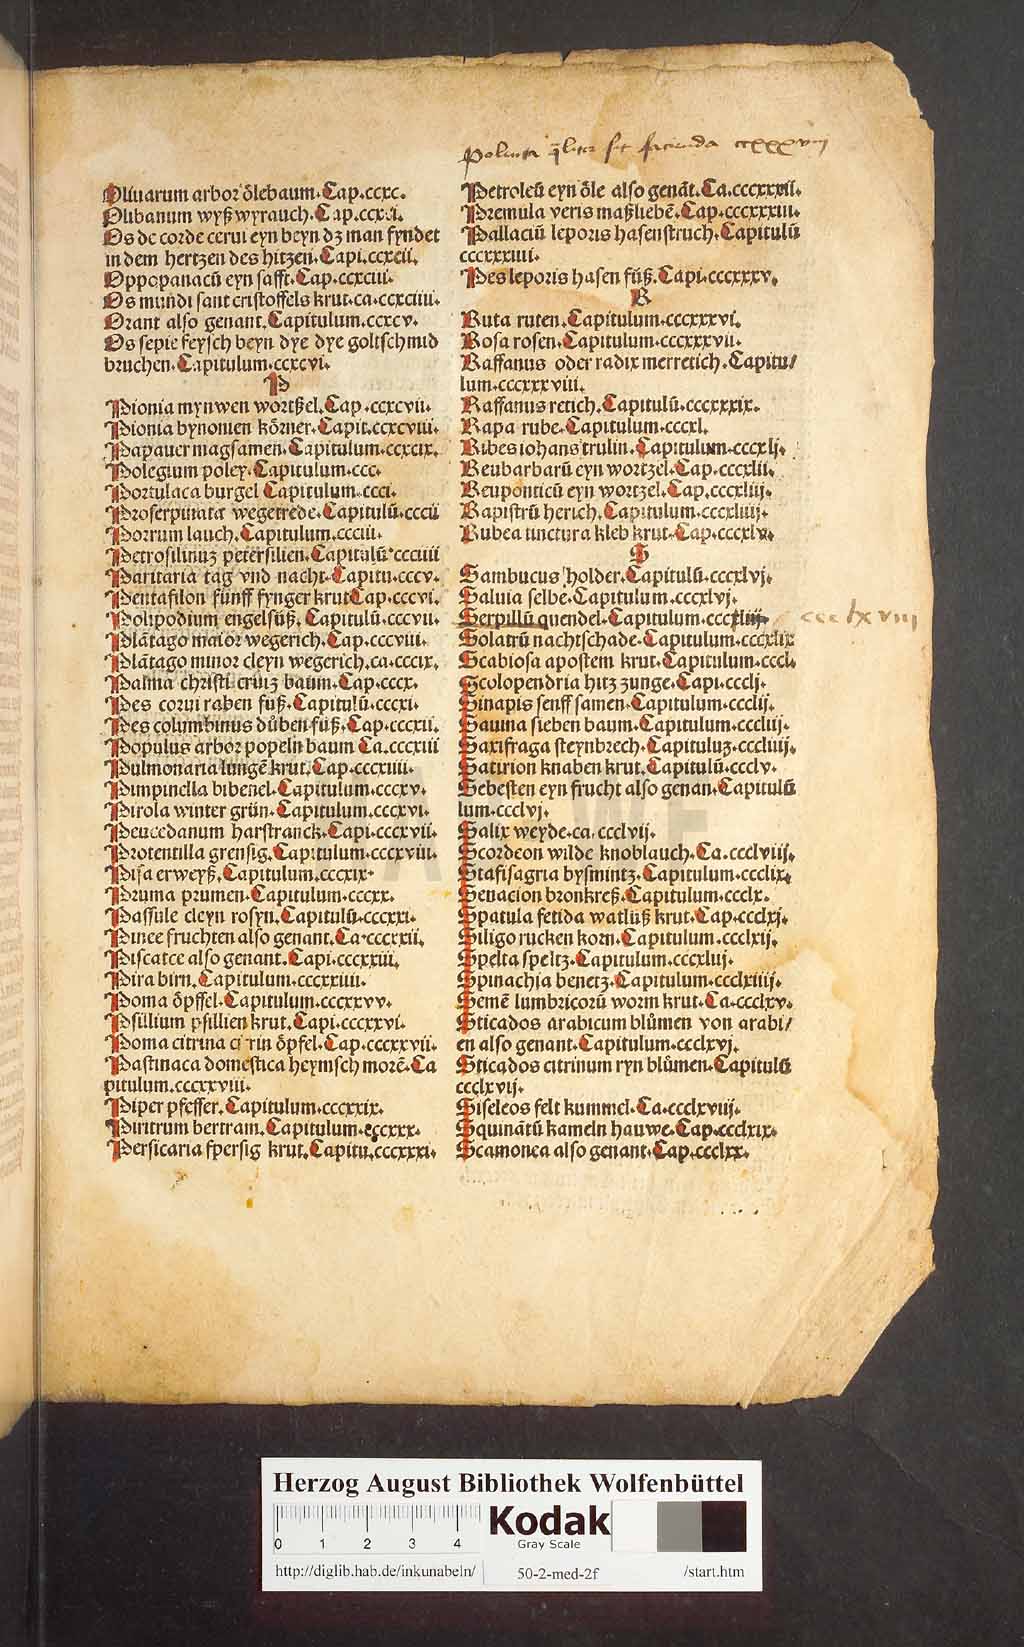 Polenta qͣliter sit facienda ccxxxviii
Oliuarum arbor ölebaum. Cap.ccxc.
Olibanum wyß wyrauch. Cap.ccxci.
Os de corde cerui eyn beyn dz man fyndet
in dem hertzen des hitzen. Capi.ccxcii.
Oppopanacū eyn safft. Cap.ccxciii.
Os mundi sant cristoffels krut. ca.ccxciiii.
Orant also genant. Capitulum.ccxcv.
Os sepie feysch beyn dye dye goltschmid
bruchen. Capitulum.ccxcvi.
P
Pionia mynwen wortzel. Cap.ccxcvii.
Pionia bynonien körner. Capit.ccxcviii.
Papauer magsamen. Capitulum.ccxcix.
Polegium poley. Capitulum.ccc.
Portulaca burgel Capitulum.ccci.
Proserpinata wegetrede. Capitulū.cccii
Porrum lauch. Capitulum.ccciii.
Petrosilinuz petersilien. Capitulū.ccciiii
Paritaria tag vnd nacht. Capitu.cccv.
Pentafilon fünff fynger krut Cap.cccvi.
Polipodium engelsüß. Capitulū.cccvii.
Plātago maior wegerich. Cap.cccviii.
Plātago minor cleyn wegerich. ca.cccix.
Palma christi cruiz baum. Cap.cccx.
Pes corui raben fuß. Capitulū.cccxi.
Pes columbinus důben fuß. Cap.cccxii.
Populus arbor popeln baum Ca.cccxiii
Pulmonaria lungē krut. Cap.cccxiiii.
Pimpinella bibenel. Capitulum.cccxv.
Pirola winter grün. Capitulum.cccxvi.
Peucedanum harstranck. Capi.cccxvii.
Protentilla grensig. Capitulum.cccxviii.
Pisa erweyß. Capitulum.cccxix.
Pruma prumen. Capitulum.cccxx.
Passule cleyn rosyn. Capitulū.cccxxi.
Pinee fruchten also genant. Ca.cccxxii.
Piscatce also genant. Capi.cccxxiii.
Pira birn. Capitulum.cccxxiiii.
Poma öpffel. Capitulum.cccxxvv.
Psillium psillien krut. Capi.cccxxvi.
Poma citrina citrin öpfel. Cap.cccxxvii.
Pastinaca domestica heymsch morē. Ca
pitulum.cccxxviii.
Piper pfeffer. Capitulum.cccxxix.
Piritrum bertram. Capitulum.cccxxx.
Persicaria fpersig krut. Capitu.cccxxxi.
Petroleū eyn öle also genāt. Ca.cccxxxii.
Premula veris maßliebē. Cap.cccxxxiii.
Pallaciū leporis hasenstruch. Capitulū
cccxxxiiii.
Pes leporis hasen füß. Capi.cccxxxv.
R
Ruta ruten. Capitulum.cccxxxvi.
Rosa rosen. Capitulum.cccxxxvii.
Raffanus oder radix merretich. Capitu/
lum.cccxxxviii.
Raffanus retich. Capitulū.cccxxxix.
Rapa rube. Capitulum.cccxl.
Ribes iohans trulin. Capitulum.cccxlj.
Reubarbarū eyn wortzel. Cap.cccxlii.
Reuponticū eyn wortzel. Cap.cccxliij.
Rapistrū herich. Capitulum.cccxliiij.
Rubea tinctura kleb krut. Cap.cccxlv.
S
Sambucus holder. Capitulū.cccxlvj.
Saluia selbe. Capitulum.cccxlvj.
Serpillū quendel. Capitulum.cccxliij. ccclxviii
Solatrū nachtschade. Capitulum.cccxlix
Scabiosa apostem krut. Capitulum.cccl.
Scolopendria hitz zunge. Capi.ccclj.
Sinapis senff samen. Capitulum.ccclij.
Sauina sieben baum. Capitulum.cccliij.
Saxifraga steynbrech. Capituluz.cccliiij.
Satirion knaben krut. Capitulū.ccclv.
Sebesten eyn frucht also genan. Capitulū
lum.ccclvj.
Salix weyde. ca.ccclvij.
Scordeon wilde knoblauch. Ca.ccclviij.
Stafisagria bysmintz. Capitulum.ccclix.
Senacion bronkreß. Capitulum.ccclx.
Spatula fetida watlüß krut. Cap.ccclxj.
Siligo rucken korn. Capitulum.ccclxij.
Spelta speltz. Capitulum.cccxliij.
Spinachia benetz. Capitulum.ccclxiiij.
Semē lumbricorū worm krut. Ca.ccclxv.
Sticados arabicum blůmen von arabi/
en also genant. Capitulum.ccclxvj.
Sticados citrinum ryn blůmen. Capitulū
ccclxvij.
Siseleos felt kummel. Ca.ccclxviij.
Squinātū kameln hauwe. Cap.ccclxix.
Scamonea also genant. Cap.ccclxx.
Herzog August Bibliothek Wolfenbüttel
0 1 2 3 4
Kodak
Gray Scale
http://diglib.hab.de/inkunabeln/ 50-2-med-2f /start.htm